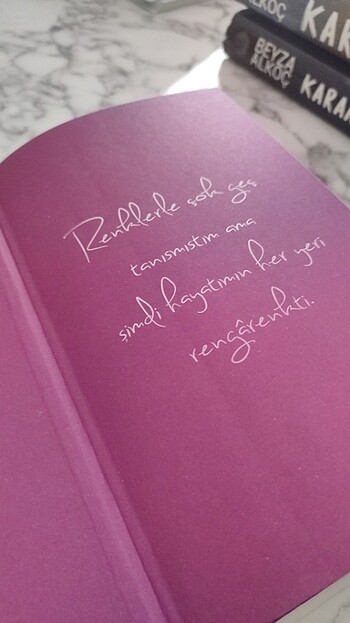 ALKOÇ
KARA
BEYZA
ALKOÇ
KARAN
Renklerle çok geç
tanışmıştım ama
şimdi hayatımın her yeri
rengârenkti.